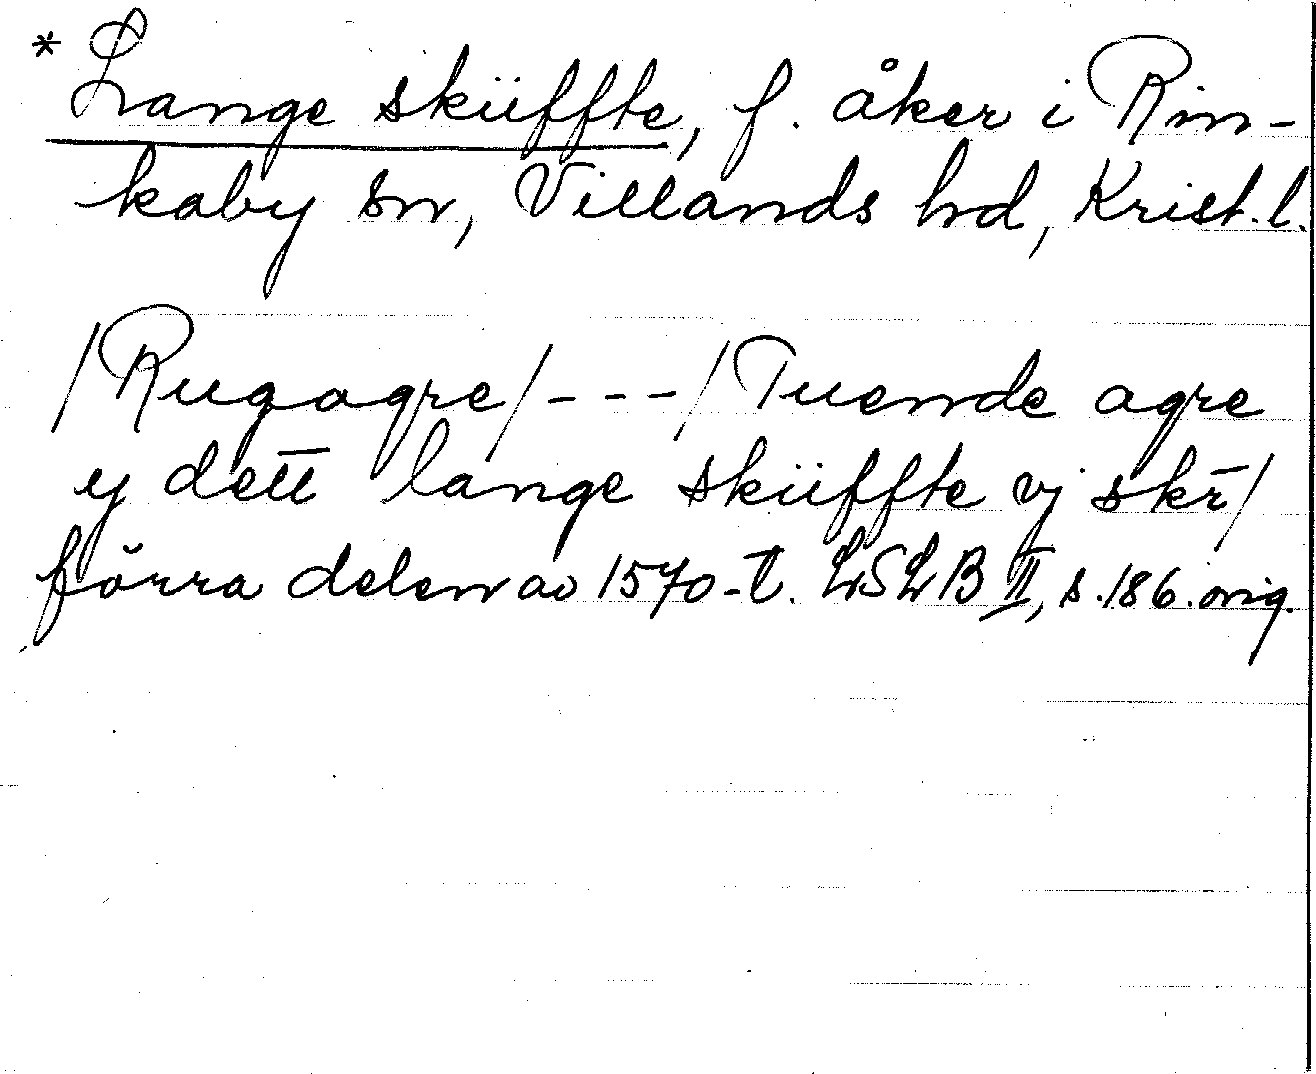 * Lange skiiffte, f. åker i Rin-
kaby sn, Villands hd, Krist. l.
/Rugagre/ --- /Tuende agre
ij dett lange skiiffte vj skr̄/
förra delen av 1570-t. LSLB II, s. 186. orig.